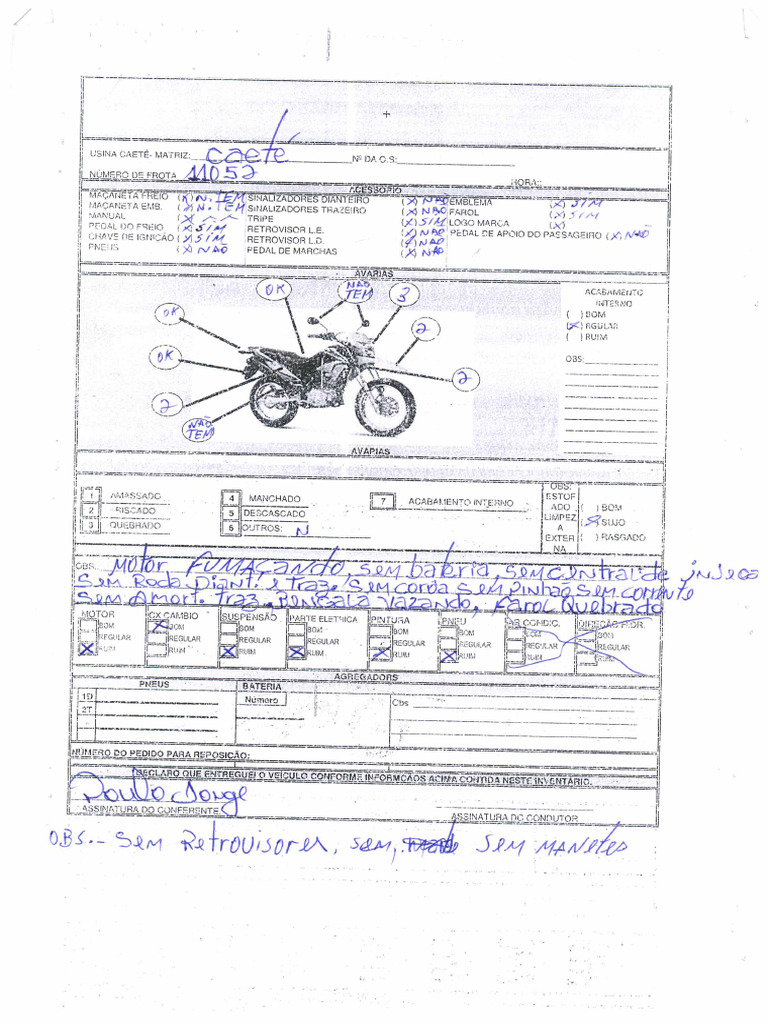 USINA CAETÉ- MATRIZ: caeté Nº DA O.S:
NÚMERO DE FROTA 11052 HORA:
ACESSÓRIO
MAÇANETA FREIO (X) N. TEM SINALIZADORES DIANTEIRO (X) NÃO EMBLEMA (X) SIM
MAÇANETA EMB. (X) N. TEM SINALIZADORES TRAZEIRO (X) NÃO FAROL (X) SIM
MANUAL (X) TRIPE (X) SIM LOGO MARCA (X)
PEDAL DO FREIO (X) SIM RETROVISOR L.E. (X) NÃO PEDAL DE APOIO DO PASSAGEIRO (X) NÃO
CHAVE DE IGNIÇÃO (X) SIM RETROVISOR L.D. (X) NÃO
PNEUS (X) NÃO PEDAL DE MARCHAS (X) NÃO
AVARIAS
OK NÃO TEM 3
OK 2
OK 2
2
NÃO TEM
ACABAMENTO
INTERNO
( ) BOM
(X) RGULAR
( ) RUIM
OBS:
AVARIAS
1 AMASSADO 4 MANCHADO 7 ACABAMENTO INTERNO
2 RISCADO 5 DESCASCADO
3 QUEBRADO 6 OUTROS: N
OBS:
ESTOF
ADO
LIMPEZ
A
EXTER
NA
( ) BOM
(X) SUJO
( ) RASGADO
OBS. Motor FUMAÇANDO, sem bateria, sem central de injeca
Sem Roda Diant. e traz. Sem coroa sem Pinhão sem corrente
Sem Amort. Traz. Bengala Vazando, Farol Quebrado
MOTOR CX CAMBIO SUSPENSÃO PARTE ELETRICA PINTURA PNEU AR CONDIC. DIREÇÃO HIDR.
BOM BOM BOM BOM BOM BOM BOM BOM
REGULAR REGULAR REGULAR REGULAR REGULAR REGULAR REGULAR REGULAR
X RUIM X RUIM X RUIM X RUIM X RUIM X RUIM RUIM RUIM
AGREGADORS
PNEUS BATERIA
1D Número Obs
2T
NÚMERO DO PEDIDO PARA REPOSIÇÃO:
DECLARO QUE ENTREGUEI O VEÍCULO CONFORME INFORMÇÃOS ACIMA CONTIDA NESTE INVENTÁRIO.
Paulo Jorge
ASSINATURA DO CONFERENTE ASSINATURA DO CONDUTOR
OBS.- Sem Retrovisores, sem, SEM MANETES